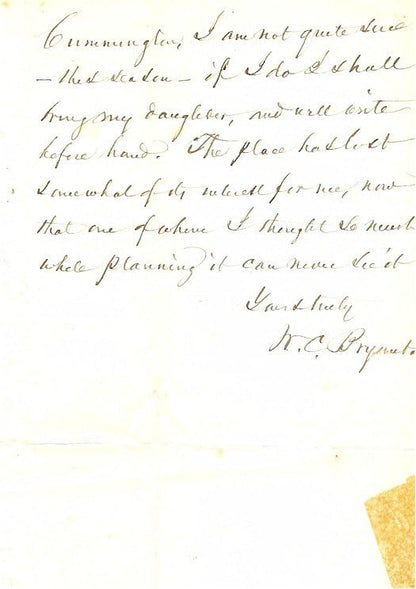 Cummington, I am not quite sure
– this season – if I do I shall
bring my daughter, and will write
before hand. The place has lost
somewhat of its interest for me, now
that one of whom I thought so much
while planning it can never see it
Yours truly
W. C. Bryant.